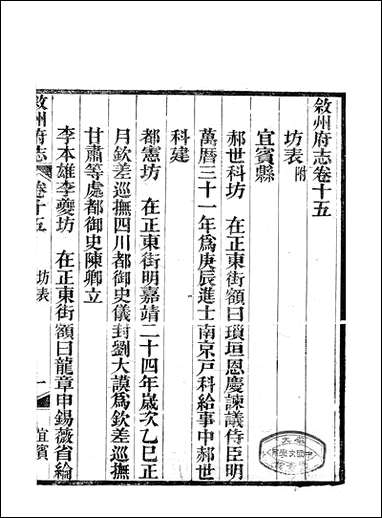 敘州府志卷十五
坊表 附
宜賓縣
郝世科坊 在正東街額曰瑣垣恩慶諫議侍臣明
萬曆三十一年為庚辰進士南京戶科給事中郝世
科建
都憲坊 在正東街明嘉靖二十四年歲次乙巳正
月欽差巡撫四川都御史儀封劉大謨為欽差巡撫
甘肅等處都御史陳卿立
李本雄李夔坊 在正東街額曰龍章申錫薇省綸
敘州府志 卷十五 坊表 一 宜賓